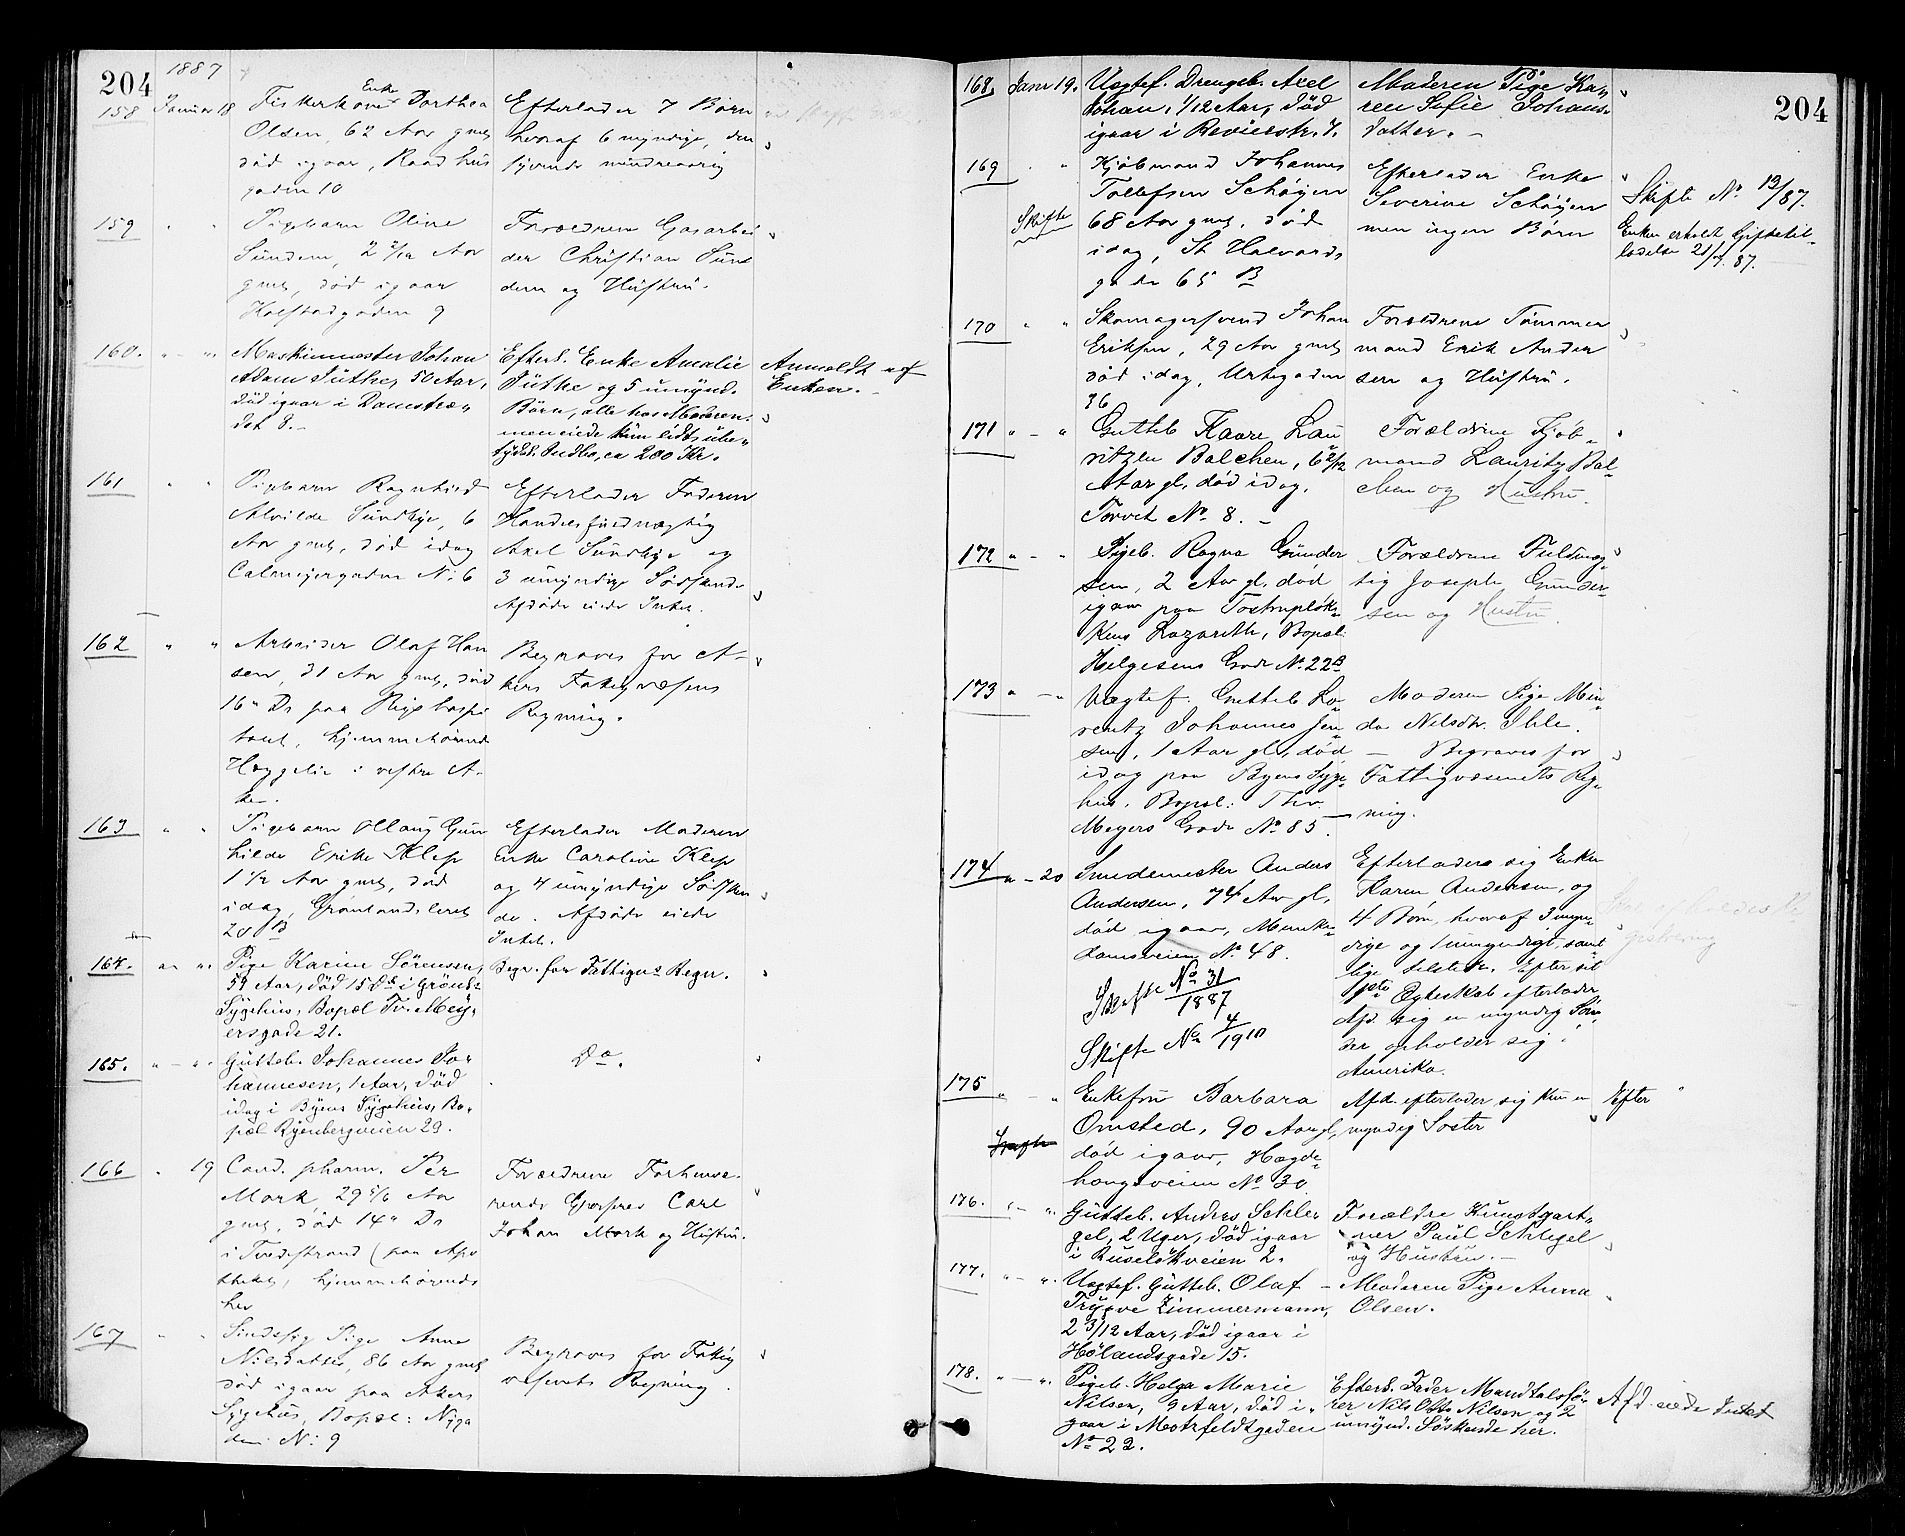 204
1887
158 Januar 18 Fiskerkone Enke Dorthea
Olsen, 62 Aar gml
død igaar, Raadhus
gaden 10
Efterlader 7 Børn
hvoraf 6 myndige, den
syvende mindreaarig
159 " " Pigebarn Oline
Sundem, 2 Aar
gml, død igaar
Holstadgaden 9
Forældrene Gasarbei
der Christian Sun
dem og Hustru.
160. " - " Maskinmester Johan
Adam Lüthe, 50 Aar,
død igaar i Damstræ„
det 8. -
Efterl. Enke Amalie
Lüthe og 5 umynd.
Børn, alle hos Moderen.
men eiede kun lidt ube„
tydel. Indbo, ca 200 Kr.
Anmeldt af
Enken. -
161 " " Pigebarn Ragnhild
Alvilde Sundbye, 6
Aar gml, død idag
Calmeyergaden No 6
Efterlader Faderen
Handelsfuldmægtig
Axel Sundbye og
3 umyndige Sødskende
Afdøde eiede Intet.
162 " " Arbeider Olaf Han
sen, 31 Aar gml, død
16 Ds paa Rigshospi
talet, hjemmehørende
Hæggelie i vestre A-
ker.
Begraves for A-
kers Fattigvæsens
Regning.
163 " " Pigebarn Gun
hilda Erike Klep
1 1/2 Aar gml, død
idag, Grønlandsleret
28 B
Efterlader Moderen
Enke Caroline Klep
og 4 umyndige Sødsken
de. Afdøde eiede
Intet.
164. " " Pige Karine Sørensen,
59 Aar, død 15 Ds i Grönl.s
Sygehus, Bopæl Th. Mey„
ersgade 21.
Begr. for Fattigv.s Regn.
165. " - " Gutteb. Johannes Jo„
hannesen, 1 Aar, død
idag i Byens Sygehus, Bo„
pæl Ryenbergveien 29.
Do.
166 " 19 Cand. pharm. Per
Mork, 29 Aar
gml, død 14 Ds
i Tvedestrand (paa Apo
theket, hjemmehørende
her
Forældrene Forhenvæ.
rende Grosserer Carl
Johan Mork og Hustru.
167 " " Sindssyg Pige Anne
Nilsdatter, 86 Aar gml
død igaar paa Akers
Sygehus, Bopæl: Nyga
den No 9
Begraves for Fattig
væsenets Regning.
204
168. Janr 19. Uægtef. Drengeb. Axel
Johan, 1/12 Aar, død
igaar i Revierstr. 7.
Moderen Pige Ka„
ren Sofie Johans„
datter. -
169 " " Kjøbmand Johannes
Tollefsen Schøyen
Skifte
68 Aar gml, død
idag, St. Halvards
gade 65 B
Efterlader Enke
Severine Schøyen
men ingen Børn
Skifte No 13/87.
Enken erholdt Giftetil„
ladelse 21/7. 87.
170 " " Skomagersvend Johan
Eriksen, 29 Aar gml
død idag, Urtegaden
36
Forældrene Tømmer
mand Erik Ander
sen og Hustru.
171 " - " Gutteb. Kaare Lau
ritzen Balchen, 6 2/12
Aar gl, død idag,
Torvet No 8. -
Forældrene Kjøb„
mand Lauritz Bal„
chen og Hustru.
172 " - " Pigeb. Ragna Gunder
sen, 2 Aar gl, død
igaar paa Tostrupløk„
kens Lazareth, Bopæl:
Helgesens Gade No 22 B
Forældrene Fuldmæg„
tig Joseph Gunder„
sen og Hustru.
173 " - " Uægtef. Gutteb. Lo„
rentz Johannes Jen„
sen, 1 Aar gl, død
idag paa Byens Syge„
hus, Bopæl: Thv.
Meyers Gade No 85.
Moderen Pige Min„
da Nilsdtr. Ihle.
- Begraves for
Fattigvæsenets Reg„
ning.
174 " - 20 Smedemester Anders
Andersen, 74 Aar gl,
død igaar, Munke„
damsveien No 48.
Skifte No 31/1887
Skifte No 4/1910
Efterlader sig Enke
Karen Andersen, og
4 Børn, hvoraf 3 myn„
dige og 1 umyndigt, samt
lige tilstede. Efter sit
1ste Ægteskab efterlader
Afd. sig en myndig Søn,
der opholder sig i
Amerika.
175 " - " Enkefru Barbara
Omsted, 90 Aar gl,
Skifte
død igaar, Hægde„
haugsveien No 30
Afd. efterlader sig kun en
myndig Søster
176. " - " Gutteb. Anders Schle„
gel, 2 Uger, død igaar
i Ruseløkveien 2.
Forældre Kunstgart„
ner Paul Schlegel
og Hustru. -
177. " - " Uægtef. Gutteb. Olaf
Trygve Zimmermann,
2 3/12 Aar, død igaar i
Hølandsgade 15.
- Moderen Pige Anna
Olsen.
178. " - " Pigeb. Helga Marie
Nilsen, 9 Aar, død i„
gaar i Motzfeldtgaden
No 22.
Efterl. Fader Mandtalsfø„
rer Nils Otto Nilsen og 2
umynd. Söskende her.
Afd. eiede Intet